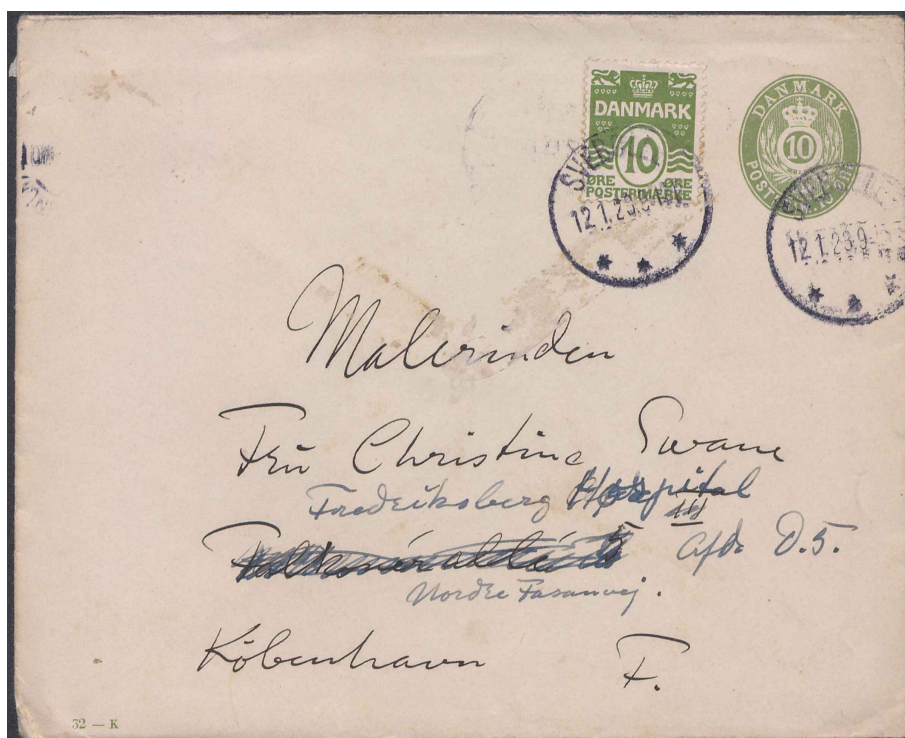 DANMARK
10
ØRE ØRE
POSTFRIMÆRKE
DANMARK
10
POST
12.1.23.9
12.1.23.9
Malerinden
Fru Christine Swane
Frederiksberg Hospital
III
Afd. D.5.
Nordre Fasanvej.
København F.
32 — K